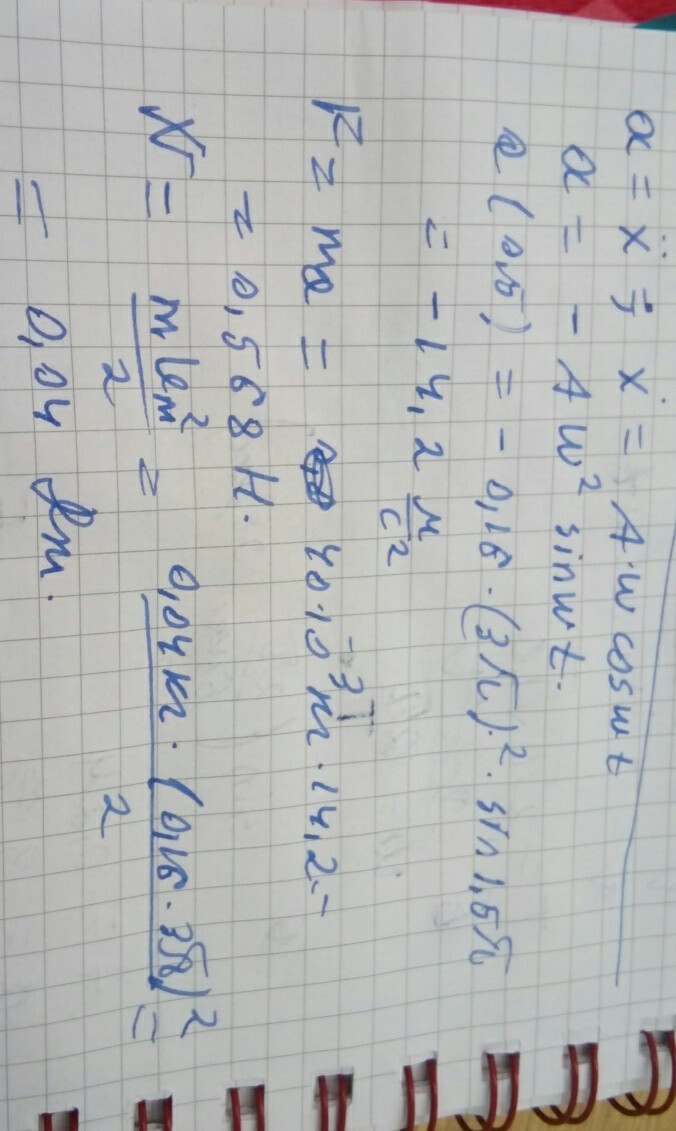 a = ẍ ; ẋ = A·w cos wt
a = - A w² sin wt.
a (0,5) = - 0,16 · (3π)² · sin 1,5π
= - 14,2 м/с²
F = ma = 40·10⁻³ кг · 14,2 =
= 0,568 Н.
W = mVm²/2 = 0,04 кг · (0,16 · 3π)²/2 =
= 0,04 Дж.